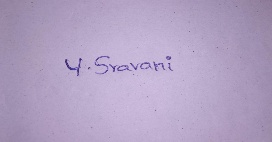 Y. Sravani